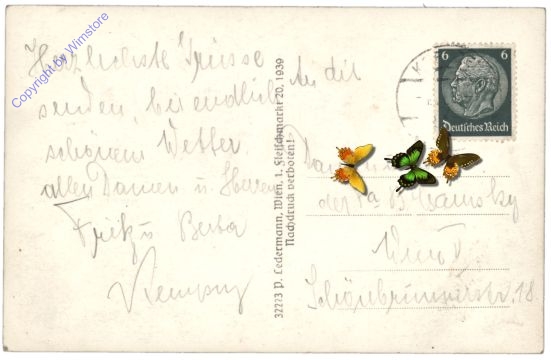 Copyright by Wimstore
Herzlichste Grüsse
senden, bei endlich
schönem Wetter
allen Damen u. Herren
Fritz u.
32223 P. Ledermann, Wien, 1. Fleischmarkt 20, 1939
Nachdruck verboten!
6 6
Deutsches Reich
An die
der Fa
Wien
Schönbrunnerstr. 18